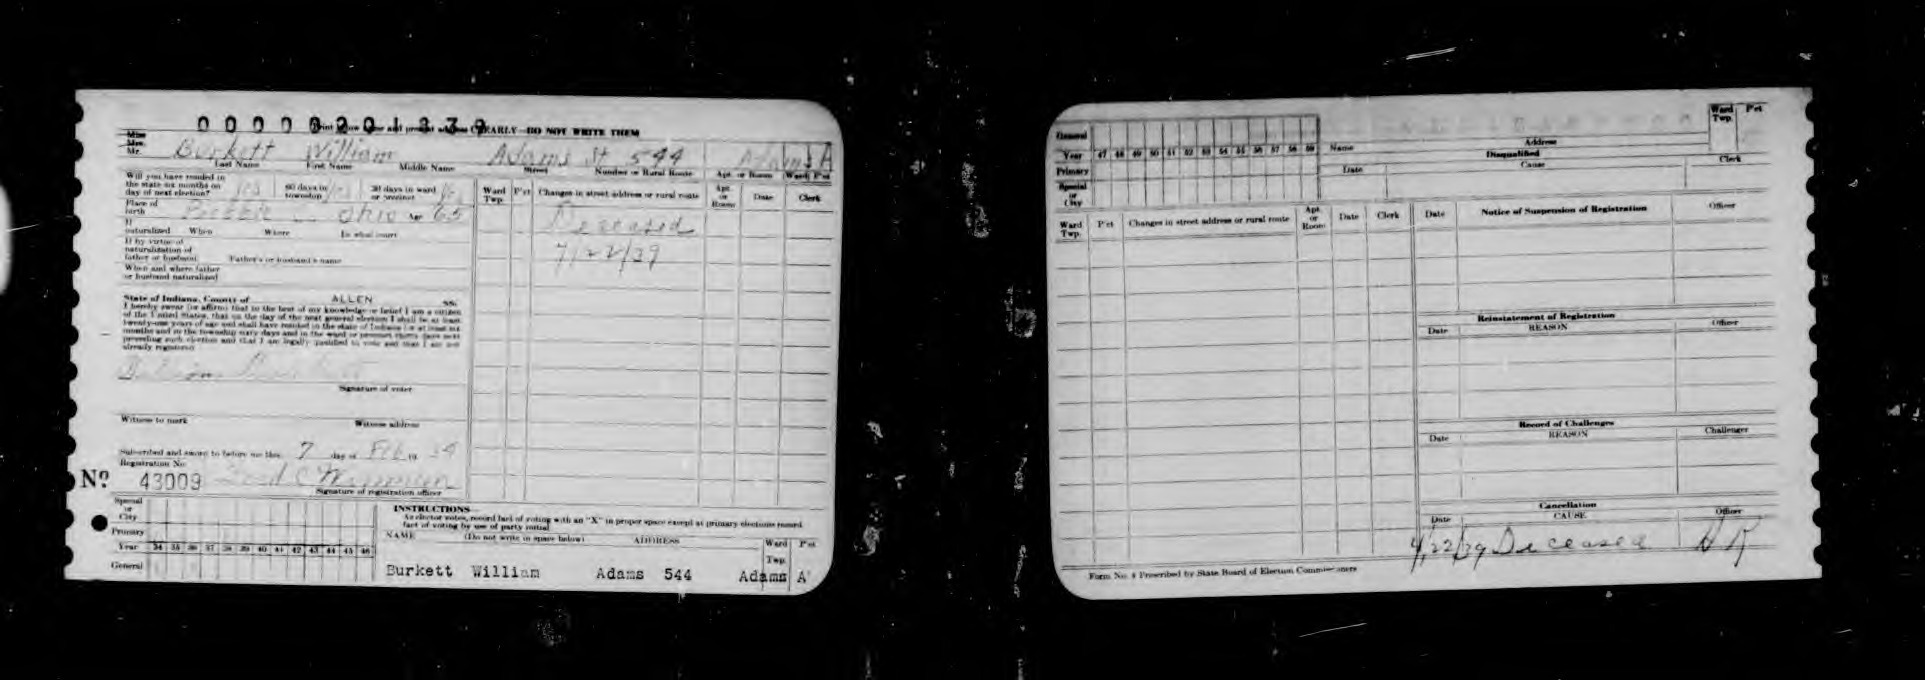 Print below name and present address CLEARLY—DO NOT WRITE THEM
Miss
Mrs.
Mr. Burkett William Adams St 544 Adams A
Last Name First Name Middle Name Street Number or Rural Route Apt. or Room Ward P'ct
Will you have resided in
the state six months on
day of next election? Yes 60 days in township 30 days in ward or precinct
Place of
birth Ohio Age 65
If
naturalized When Where In what court
If by virtue of
naturalization of
father or husband Father's or husband's name
When and where father
or husband naturalized
State of Indiana, County of ALLEN SS:
I hereby swear (or affirm) that to the best of my knowledge or belief I am a citizen
of the United States, that on the day of the next general election I shall be at least
twenty-one years of age and shall have resided in the state of Indiana for at least six
months and in the township sixty days and in the ward or precinct thirty days next
preceding such election and that I am legally qualified to vote and that I am not
already registered
William Burkett
Signature of voter
Witness to mark Witness address
Subscribed and sworn to before me this 7 day of Feb 19 34
Registration No.
No 43009
Signature of registration officer
Ward
Twp. P'ct Changes in street address or rural route Apt.
or
Room Date Clerk
Deceased
/22/39
Special
or
City
Primary
Year 34 35 36 37 38 39 40 41 42 43 44 45 46
General
INSTRUCTIONS—
As elector votes, record fact of voting with an "X" in proper space except at primary elections record
fact of voting by use of party initial
NAME (Do not write in space below) ADDRESS Ward
Twp. P'ct
Burkett William Adams 544 Adams A
General
Year 47 48 49 50 51 52 53 54 55 56 57 58 59
Primary
Special
or
City
Ward
Twp. P'ct
Name Address
Disqualified
Date Cause Clerk
Ward
Twp. P'ct Changes in street address or rural route Apt.
or
Room Date Clerk
Date Notice of Suspension of Registration Officer
Reinstatement of Registration
Date REASON Officer
Record of Challenges
Date REASON Challenger
Cancellation
Date CAUSE Officer
4/22/39 Deceased
Form No. 4 Prescribed by State Board of Election Commissioners